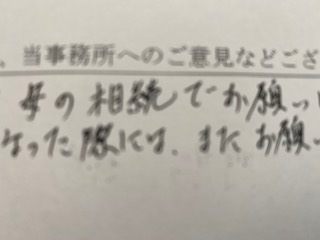 、当事務所へのご意見などござ
母の相続でお願い
なった際には、またお願い